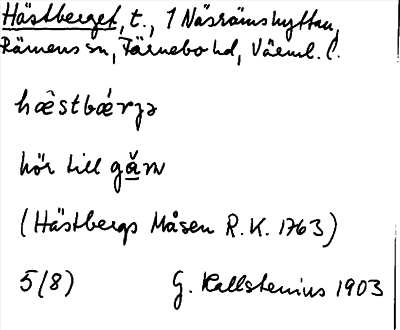 Hästberget, t., 1 Näsrämshyttan,
Rämens sn, Färnebo hd, Värml. l.
hæ̂stbǽrjə
hör till gå̌rn
(Hästbergs Måsen R.K. 1763)
5(8) G. Kallstenius 1903